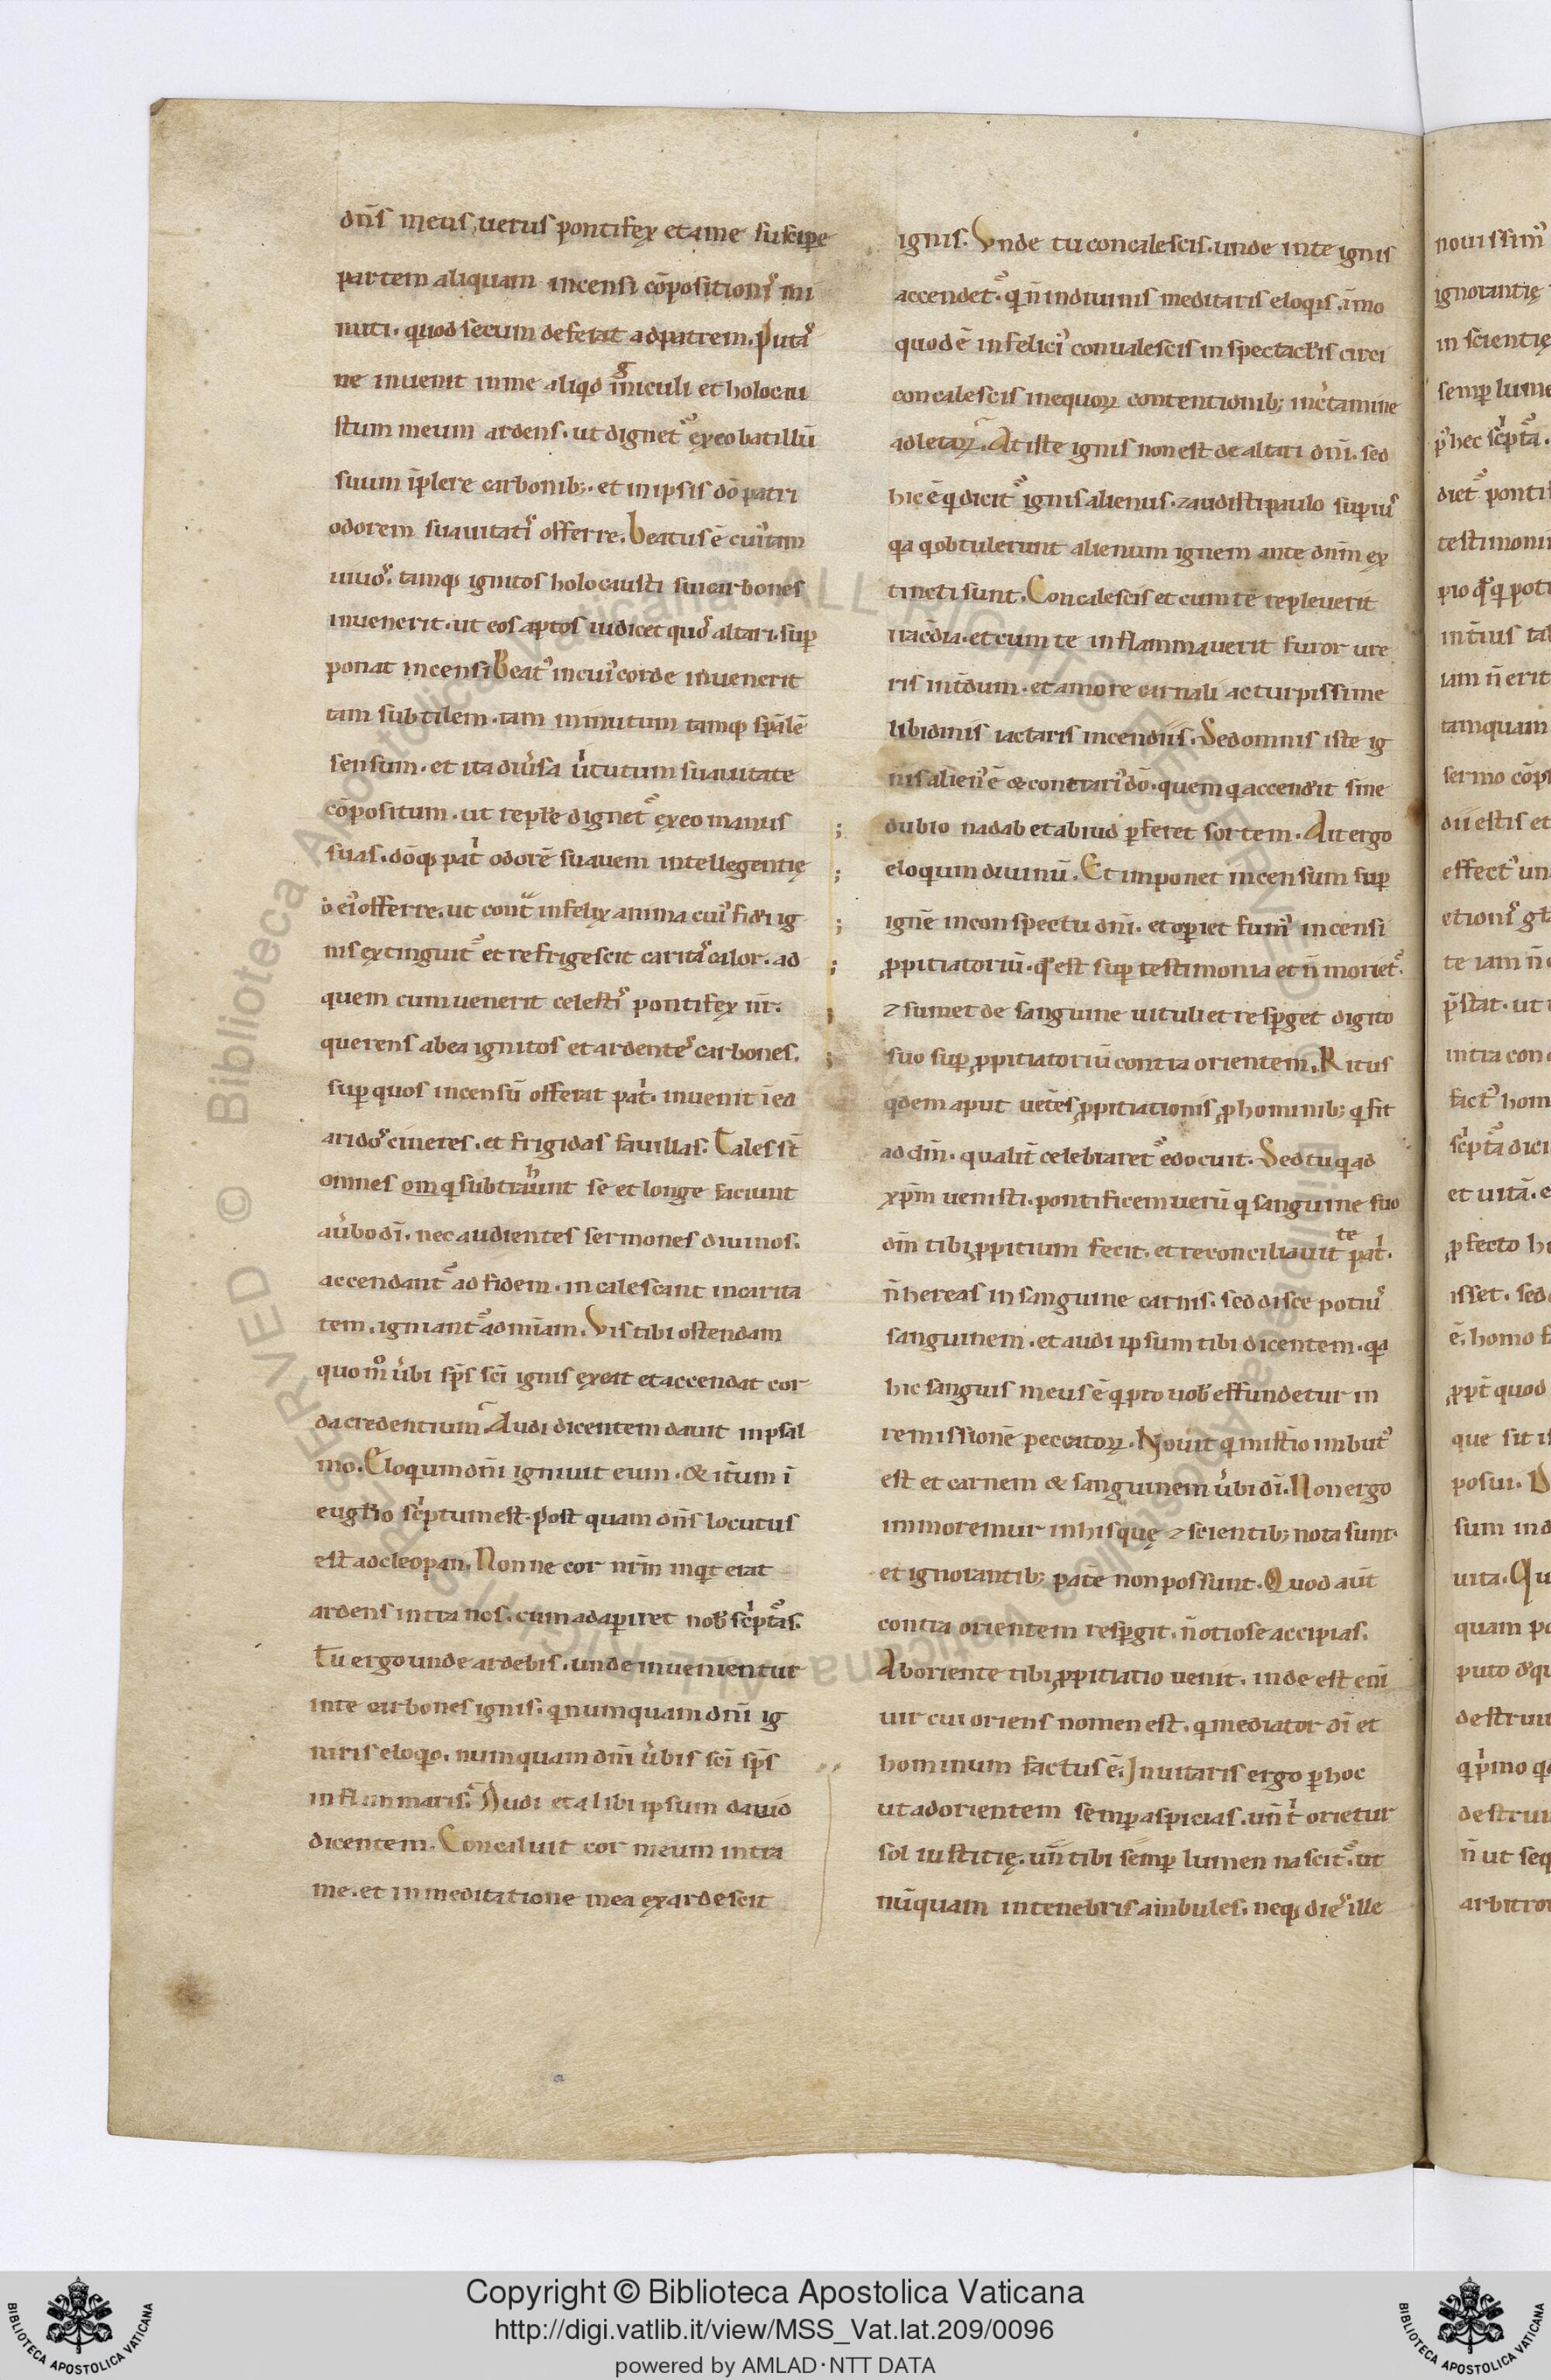 dn̄s meus uerus pontifex et a me suscipe
partem aliquam incensi cōpositionis mi
nuti. quod secum deferat ad patrem. Putas
ne inuenit in me aliqd igniculi et holocau
stum meum ardens. ut dignet᷒ ex eo batillū
suum īplere carbonib;. et in ipsis dō patri
odorem suauitatis offerre. Beatus ē cui᷒ tam
uiuos. tamq; ignitos holocausti sui carbones
inuenerit. ut eos aptos iudicet quos altari. sup̱
ponat incensi Beat᷒ in cui᷒ corde inuenerit
tam subtilem. tam minutum tamq; sp̄alē
sensum. et ita diūsa uirtutum suauitate
cōpositum. ut replere dignet᷒ ex eo manus
suas. dōq; pat̍ odorē suauem intellegentię
ei᷒ offerre. ut contͣ infelix anima cui᷒ fidei ig
nis extinguit᷒ et refrigescit caritatis calor. ad
quem cum uenerit celestis pontifex nr̄.
querens ab ea ignitos et ardentes carbones.
sup̱ quos incensū offerat pat̍. inuenit ī ea
aridos cineres. et frigidas fauillas. Tales st̄
omnes om̄ q subtrahunt se et longe faciunt
a ūbo dī. nec audientes sermones diuinos.
accendant᷒ ad fidem. incalescant in carita
tem. igniant᷒ ad mīam. Vis tibi ostendam
quom̊ ūbi sp̄s sc̄i ignis exeat et accendat cor
da credentium. Audi dicentem dauit in psal
mo. Eloquium dn̄i igniuit eum. & itͥum ī
euglio sc̍ptum est. post quam dn̄s locutus
est ad cleopan. Non ne cor nr̄m inqͥt erat
ardens intra nos. cum adaperiret nob̄ sc̍ptᷓs.
Tu ergo unde ardebis. unde inuenientur
in te carbones ignis. q numquam dn̄i ig
niris eloqͥo. numquam dn̄i ūbis sc̄i sp̄s
inflammaris. Audi et alibi ipsum dauid
dicentem. Concaluit cor meum intra
me. et in meditatione mea exardescit
ignis. Vnde tu concalescis. unde in te ignis
accendet᷒. q n̄ in diuinis meditaris eloqͥis. īmo
quod ē infelici᷒ conualescis in spectaclis circi
concalescis in equoꝝ contentionib; in c̍tamine
adletaꝝ. At iste ignis non est de altari dn̄i. sed
hic ē q dicit᷒ ignis alienus. ⁊ audisti paulo supius
qa q obtulerunt alienum ignem ante dn̄m ex
tincti sunt. Concalescis et cum te repleuerit
iracͩia. et cum te inflammauerit furor ure
ris int̍dum. et amore carnali ac turpissime
libidinis iactaris incendiis. Sed omnis iste ig
nis alien᷒ ē & contrari᷒ dō. quem q accenderit sine
dubio nadab et abiud p̱feret sortem. Ait ergo
eloquium diuinū. Et imponet incensum sup̱
ignē in conspectu dn̄i. et op̱iet fum᷒ incensi
ꝓpitiatoriū. qd est sup̱ testimonia et n̄ moriet᷒.
⁊ sumet de sanguine uituli et respget digito
suo sup̱ ꝓpitiatoriū contra orientem. Ritus
qͥdem aput uet̍es ꝓpitiationis ꝓ hominib; q fit
ad dm̄. qualit̄ celebraret᷒ edocuit. Sed tu q ad
xp̄m uenisti. pontificem uerū q sanguine suo
dm̄ tibi ꝓpitium fecit. et reconciliauit te pat̍.
n̄ hereas in sanguine carnis. sed disce potius
sanguinem. et audi ipsum tibi dicentem. qa
hic sanguis meus ē q pro uob̄ effundetur in
remissionē peccatoꝝ. Nouit q misterio imbut᷒
est et carnem & sanguinem ūbi dī. Non ergo
immoremur in his quę ⁊ scientib; nota sunt.
et ignorantib; patē non possunt. Quod aut̄
contra orientem resp̱git. n̄ otiose accipias.
Ab oriente tibi ꝓpitiatio uenit. inde est eni
uir cui oriens nomen est. q mediator dī et
hominum factus ē. Inuitaris ergo p̱ hoc
ut ad orientem semp̱ aspicias. un̄ t̍ orietur
sol iustitię. un̄ tibi semp̱ lumen nascit᷒. ut
nūquam in tenebris ambules. neq; dies ille
nouissim᷒
ignorantię
in scientię
semp̱ lume
p᷒ hec sc̍ptᷓa.
diet᷒ pontif
testimoni
iam n̄ erit
tamquam
sermo cōp
dii estis et
effect᷒ un
te iam n̄
p̄stat. ut
intra con
fact᷒ hom
sc̍ptᷓa dici
et uitā. e
ꝓfecto h
isset. sed
ē. homo f
ꝓpt̄ quod
que sit i
posui.
sum ind
uita. Qu
quam po
puto
destruit
destrui
n̄ ut seq
arbitror
Copyright © Biblioteca Apostolica Vaticana
http://digi.vatlib.it/view/MSS_Vat.lat.209/0096
powered by AMLAD·NTT DATA
BIBLIOTECA APOSTOLICA VATICANA
BIBLIOTECA APOSTOLICA VATICANA